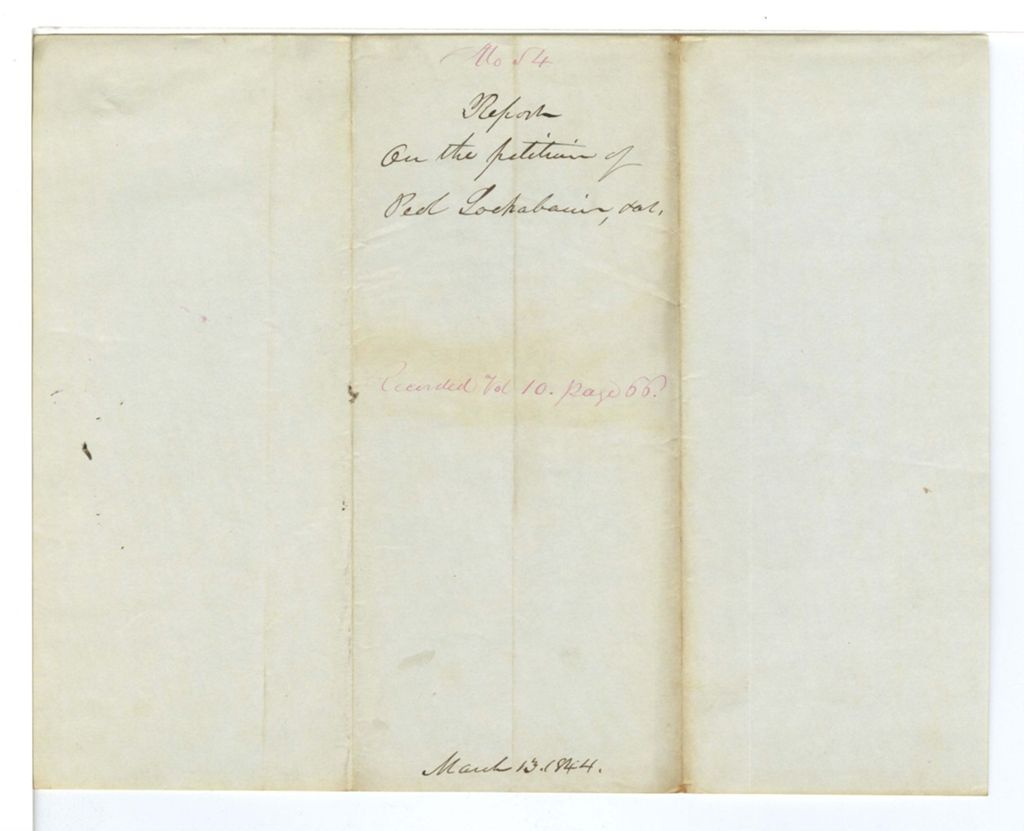 No 54
Report
On the petition of
Peel Lockabaun, & al.
Recorded Vol 10. page 66.
March 13. 1844.